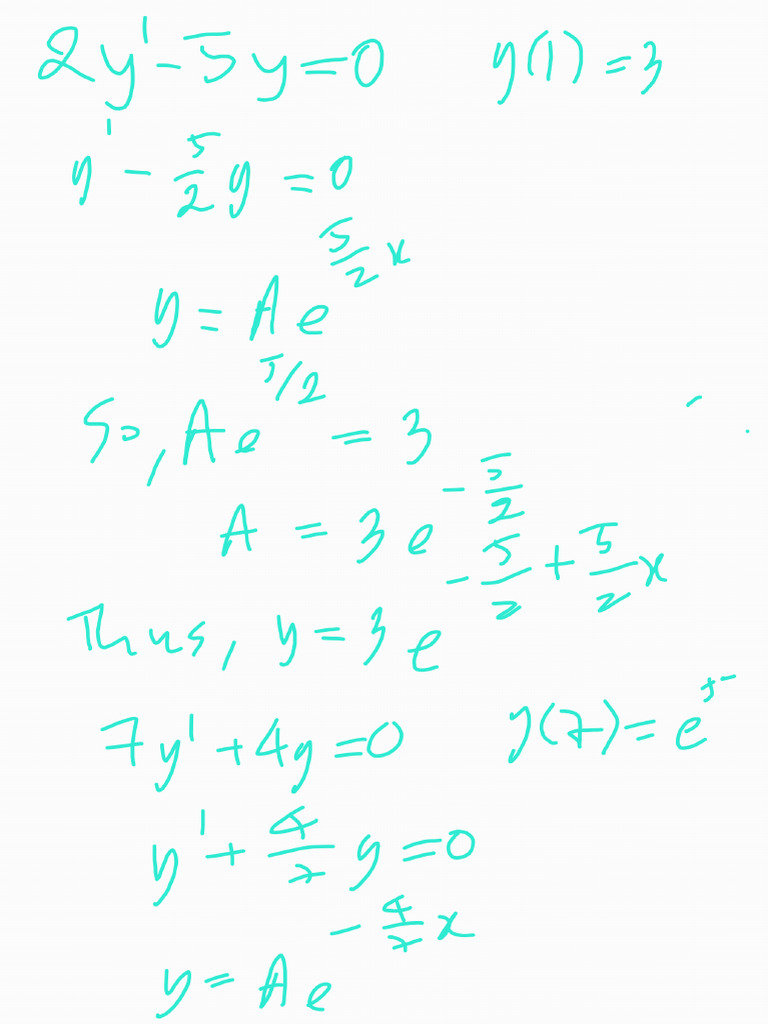 2y' - 5y = 0    y(1) = 3
y' - 5/2 y = 0
y = A e^{5/2 x}
So, A e^{5/2} = 3
A = 3 e^{-5/2}
Thus, y = 3 e^{-5/2 + 5/2 x}
7y' + 4y = 0    y(7) = e^5
y' + 4/7 y = 0
y = A e^{-4/7 x}